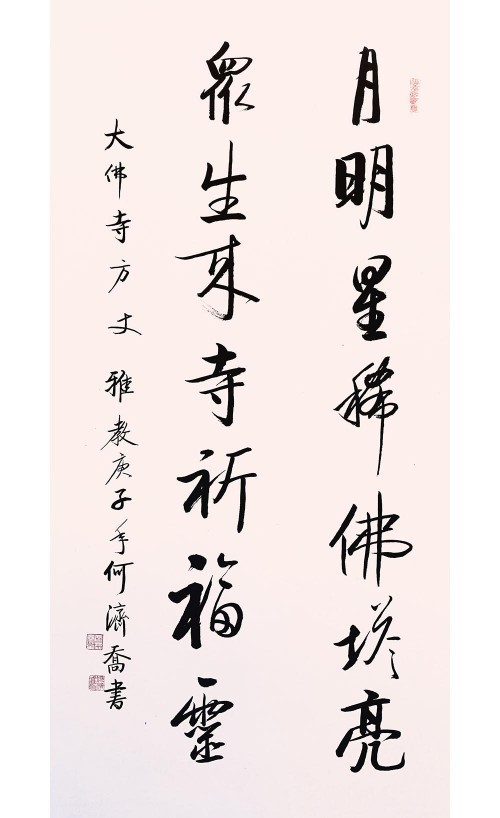 月明星稀佛塔亮
眾生来寺祈福靈
大佛寺方丈 雅教庚子年何濟喬書